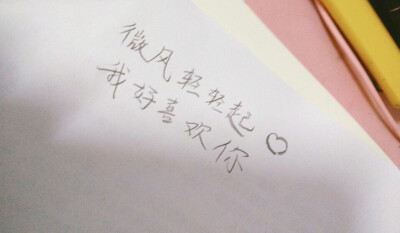 微风轻轻起♡
我好喜欢你